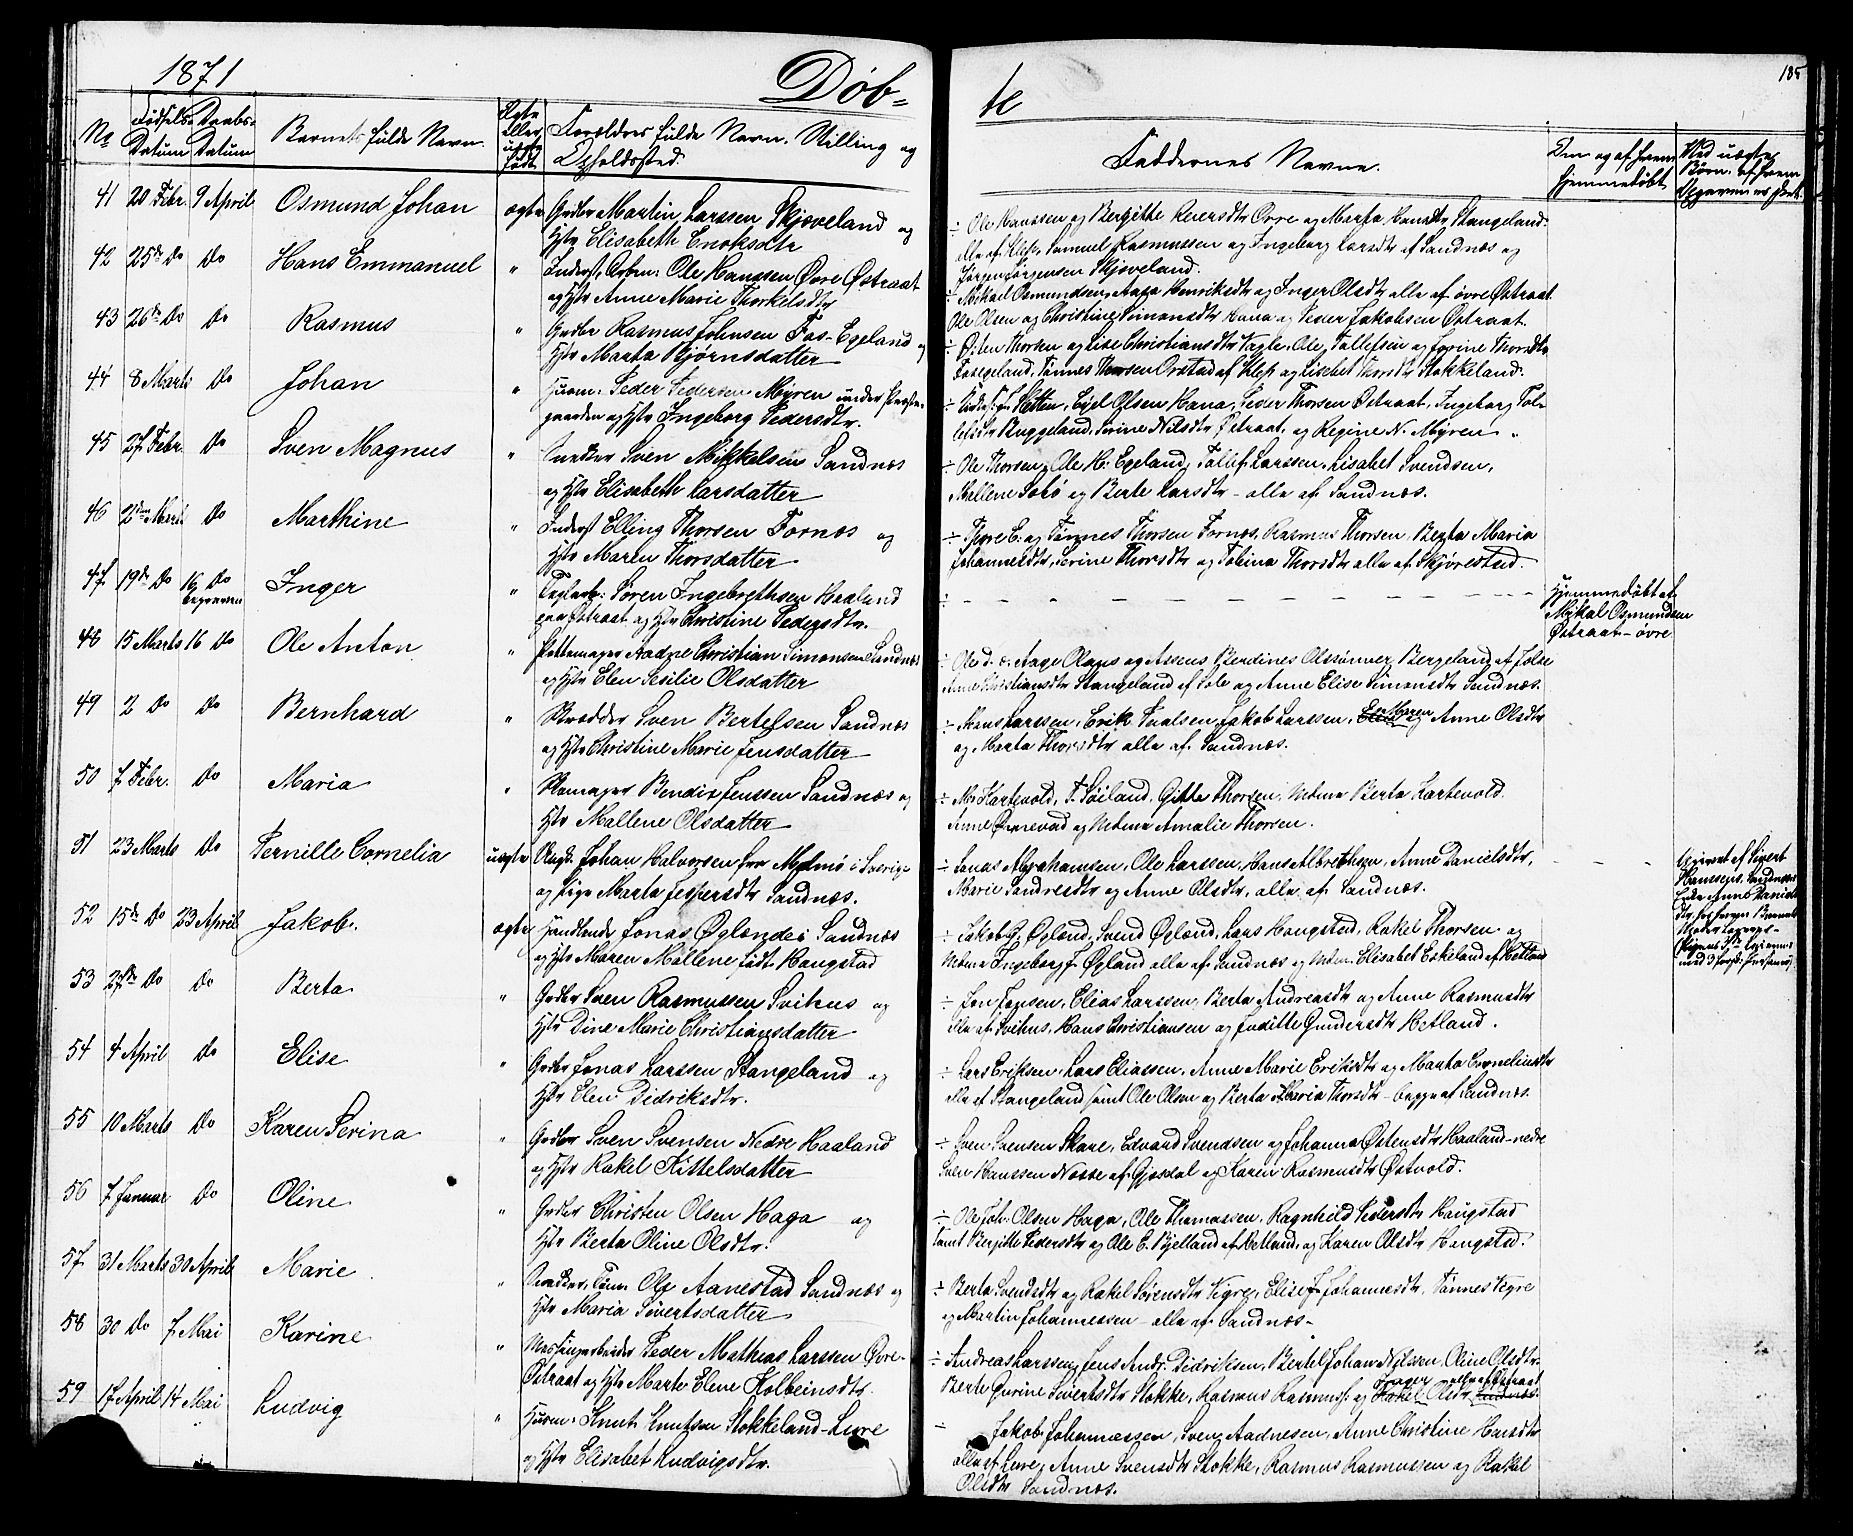 1871
Døb-
te
185
No
Fødsels-Datum
Daabs-Datum
Barnets fulde Navn.
Ægte eller uægte født
Forældres fulde Navn, Stilling og Opholdssted.
Faddernes Navne.
Om og af hvem hjemmedøbt
Ved uægte Børn, af hvem Opgaven er skeet.
41 20 Febr. 9 April Osmund Johan ægte Grdbr Martin Larssen Skjøveland og
Hstr Elisabeth Enoksdtr
÷ Ole Hanssen og Bergitte Reiersdtr Orre og Marta Hansdtr Stangeland
alle af Klep, Samuel Rasmussen og Ingeborg Larsdtr af Sandnæs og
Jørgen Jørgensen Skjøveland.
42 25de Do Do Hans Emmanuel " Inderst, Arbm: Ole Hanssen Øvre Østraat
og Hstr Anne Marie Thorkelsdtr
÷ Mikael Osmundsen, Aasa Henriksdtr og Inger Olsdtr alle af øvre Østraat
Ole Olsen og Christine Simonsdtr Hana og Peder Jakobsen Østraat.
43 26de Do Do Rasmus " Grdbr Rasmus Johnsen Fos-Egeland og
Hstr Marta Bjørnsdatter
÷ Østen Thorsen og Lise Christiansdtr Vagle, Ole Tollefsen og Serine Thorsdtr
Fosegeland, Tønnes Thorsen Orstad af Klep og Lisebet Thorsdtr Stokkeland.
44 8 Marts Do Johan " Husm: Peder Pedersen Myren under Præste-
gaarden og Hstr Ingeborg Pedersdtr.
Hetten, Egel Olsen Hana, Peder Thorsen Østraat, Ingeborg Tol-
lefsdtr Buggeland, Serine Nilsdtr Østraat og Regine N. Myren
45 27 Febr. Do Sven Magnus " Snedker Sven Mikkelsen Sandnæs
og Hstr Elisabeth Larsdatter
÷ Ole Thorsen, Ole H. Egeland, Tollef Larssen, Lisabet Svendsen,
Mallene Sobø og Berte Larsdtr - alle af Sandnæs.
46 2den Marts Do Marthine " Inderst Elling Thorsen Fornæs og
Hstr Maren Thorsdatter
÷ Thore E. og Tønnes Thorsen Fornæs, Rasmus Thorsen, Berta Maria
Johannesdtr, Serine Thorsdtr og Tobina Thorsdtr alle af Skjørestad.
47 19de Do 16 Do begraven Inger " Teglarb: Søren Ingebrethsen Haaland
paa Østraat og Hstr Christine Pedersdtr.
÷ - - - - - -
Hjemmedøbt af
Mikal Osmundsen
Østraat-øvre
48 15 Marts 16 Do Ole Anton " Pottemager Aadne Christian Simonsen Sandnæs
og Hstr Elen Cecilie Olsdatter
Aage Olaus og Assens Berdines Olssønner Bergeland af Jolse
Anne Christiansdtr Stangeland af Sole og Anne Elise Simonsdtr Sandnæs.
49 2 Do Do Bernhard " Skrædder Sven Bertelsen Sandnæs
og Hstr Christine Marie Jensdatter
÷ Mons Larssen, Erik Paulsen, Jakob Larssen, Maren og Anne Olsdtr
og Marta Thorsdtr alle af Sandnæs.
50 7 Febr. Do Maria " Skomager Bendix Jenssen Sandnæs og
Hstr Mallene Olsdatter
÷ Ms Kartevold, T. Søiland, Gitta Thorsen, Mdme Berta Kartevold
Anne Ømrevad og Mdme Amalie Thorsen.
51 23 Marts Do Pernille Cornelia uægte Ungk. Johan Halvorsen fra Malmø i Sverige
og Pige Marta Jespersdtr Sandnæs.
÷ Jonas Abrahamsen, Ole Larssen, Hans Albrethsen, Anne Danielsdtr,
Marie Sandresdtr og Anne Olsdtr, alle af Sandnæs.
Opgivet af Sivert
Hanssen, Sandnæs
52 15de Do 23 April Jakob. ægte Handlende Jonas Øglænde i Sandnæs
og Hstr Maren Mallene født Haugstad
÷ Jakob G. Øglænd, Svend Øglænd, Lars Haugstad, Rakel Thorsen og
Mdme Ingeborg J. Øgland alle af Sandnæs og Mdm. Elisabet Eskeland af Hetland
53 27de Do Do Berta " Grdbr Sven Rasmussen Svihus og
Hstr Dine Marie Christiansdatter
÷ Jon Jonsen, Elias Larssen, Berta Andreasdtr og Anne Rasmusdtr
alle af Svihus, Hans Christiansen og Juditte Gundersdtr Hetland.
54 4 April Do Elise " Grdbr Jonas Larssen Stangeland og
Hstr Elen Didriksdtr.
÷ Lars Eriksen, Lars Eliassen, Anne Marie Eriksdtr og Marta Corneliusdtr
alle af Stangeland samt Ole Olsen og Berta Maria Thorsdtr - begge af Sandnæs.
55 10 Marts Do Karen Serina " Grdbr Sven Svensen Nedre Haaland
og Hstr Rakel Kittelsdatter
÷ Sven Svensen Skare, Edvard Svendsen og Johanna Østensdtr Haaland-nedre
Sven Hanssen Nosse af Gjesdal og Karen Rasmusdtr Østvold.
56 7 Januar Do Oline " Grdbr Christen Olsen Haga og
Hstr Berta Oline Olsdtr.
÷ Ole Joh. Olsen Haga, Ole Thomassen, Ragnhild Pedersdtr Haugstad
samt Bergitte Pedersdtr og Ole E. Bjelland af Hetland, og Karen Olsdtr Haugstad.
57 31 Marts 30 April Marie " Snedker, Tøm. Ole Aanestad Sandnæs og
Hstr Maria Sivertsdatter
÷ Berta Svendsdtr og Rakel Sørensdtr Vigre, Elise J. Johannesdtr, Tønnes Vigre
og Martin Johannessen - alle af Sandnæs-
58 30 Do 7 Mai Karine " Peder Mathias Larssen Øvre-
Østraat og Hstr Marte Elene Kolbeinsdtr.
÷ Andreas Larssen, Jens Andr. Didriksen, Bertel Johan Nilssen, Oline Olsdtr
Berte Gurine Sivertsdtr Stokke, Rasmus Rasmuss. og Inger Rakel Olsdtr alle af Østraat Sandnæs.
59 17 April 14 Mai Ludvig " Husm: Knut Knutsen Stokkeland-Lure
og Hstr Elisabet Ludvigsdtr.
÷ Jakob Johannessen, Sven Aadnesen, Anne Christine Hansdtr
alle af Lure, Anne Svensdtr Stokke, Rasmus Rasmussen og Rakel
Olsdtr Sandnæs.